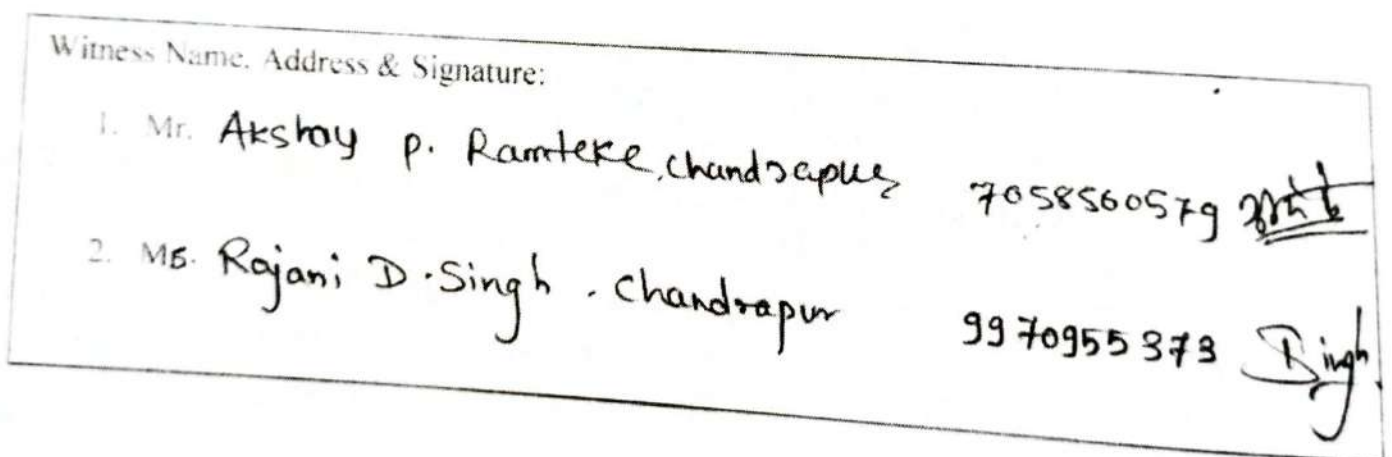 Witness Name, Address & Signature:
1. Mr. Akshay P. Ramteke, Chandrapur, 7058560579
2. Ms. Rajani D. Singh. Chandrapur 9970955373 Singh.